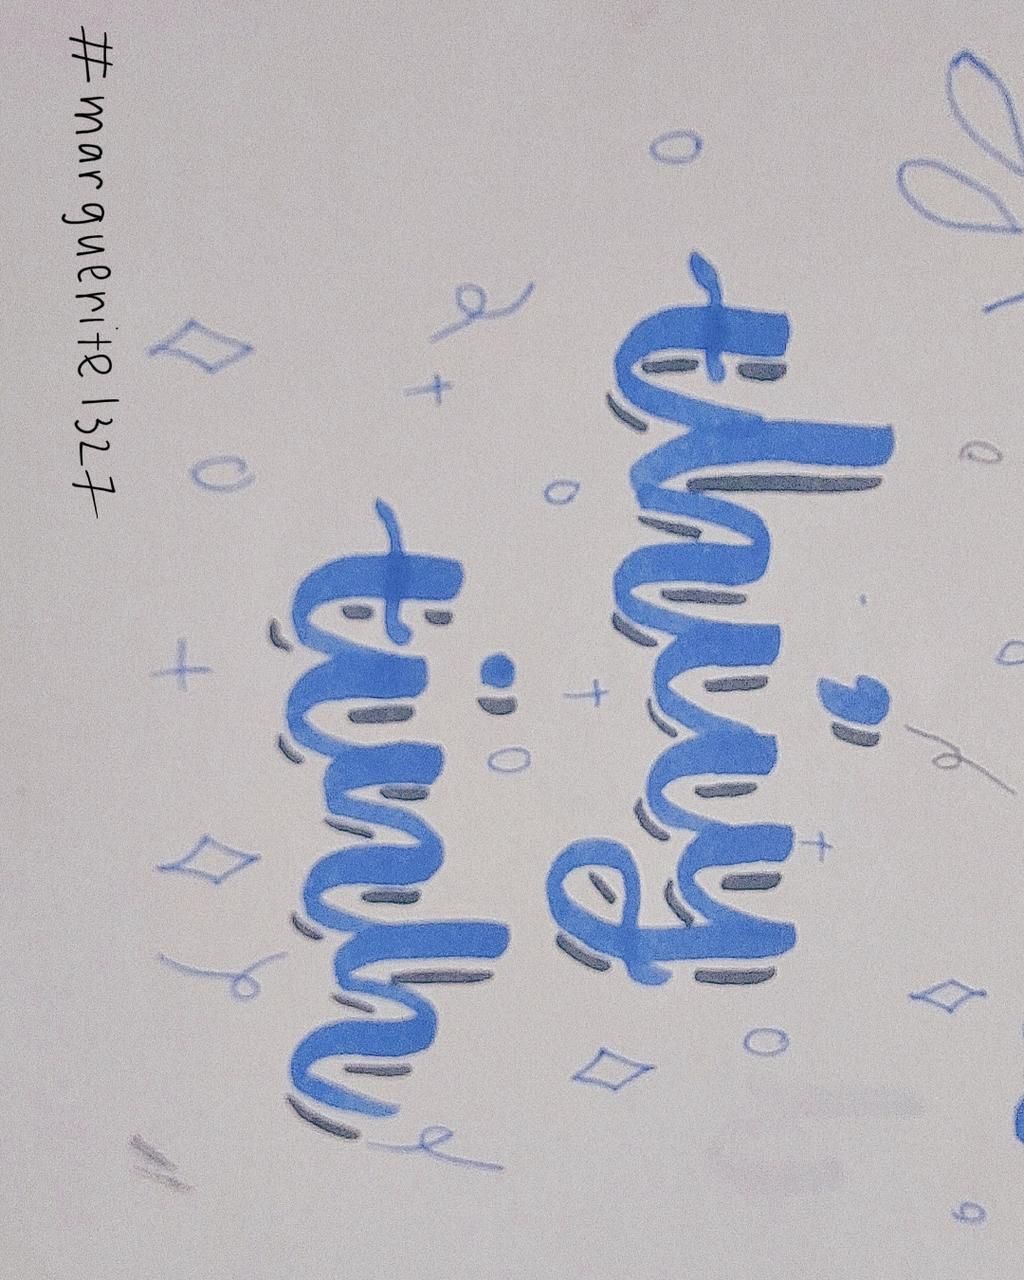 thủy
tinh
#marguerite1327